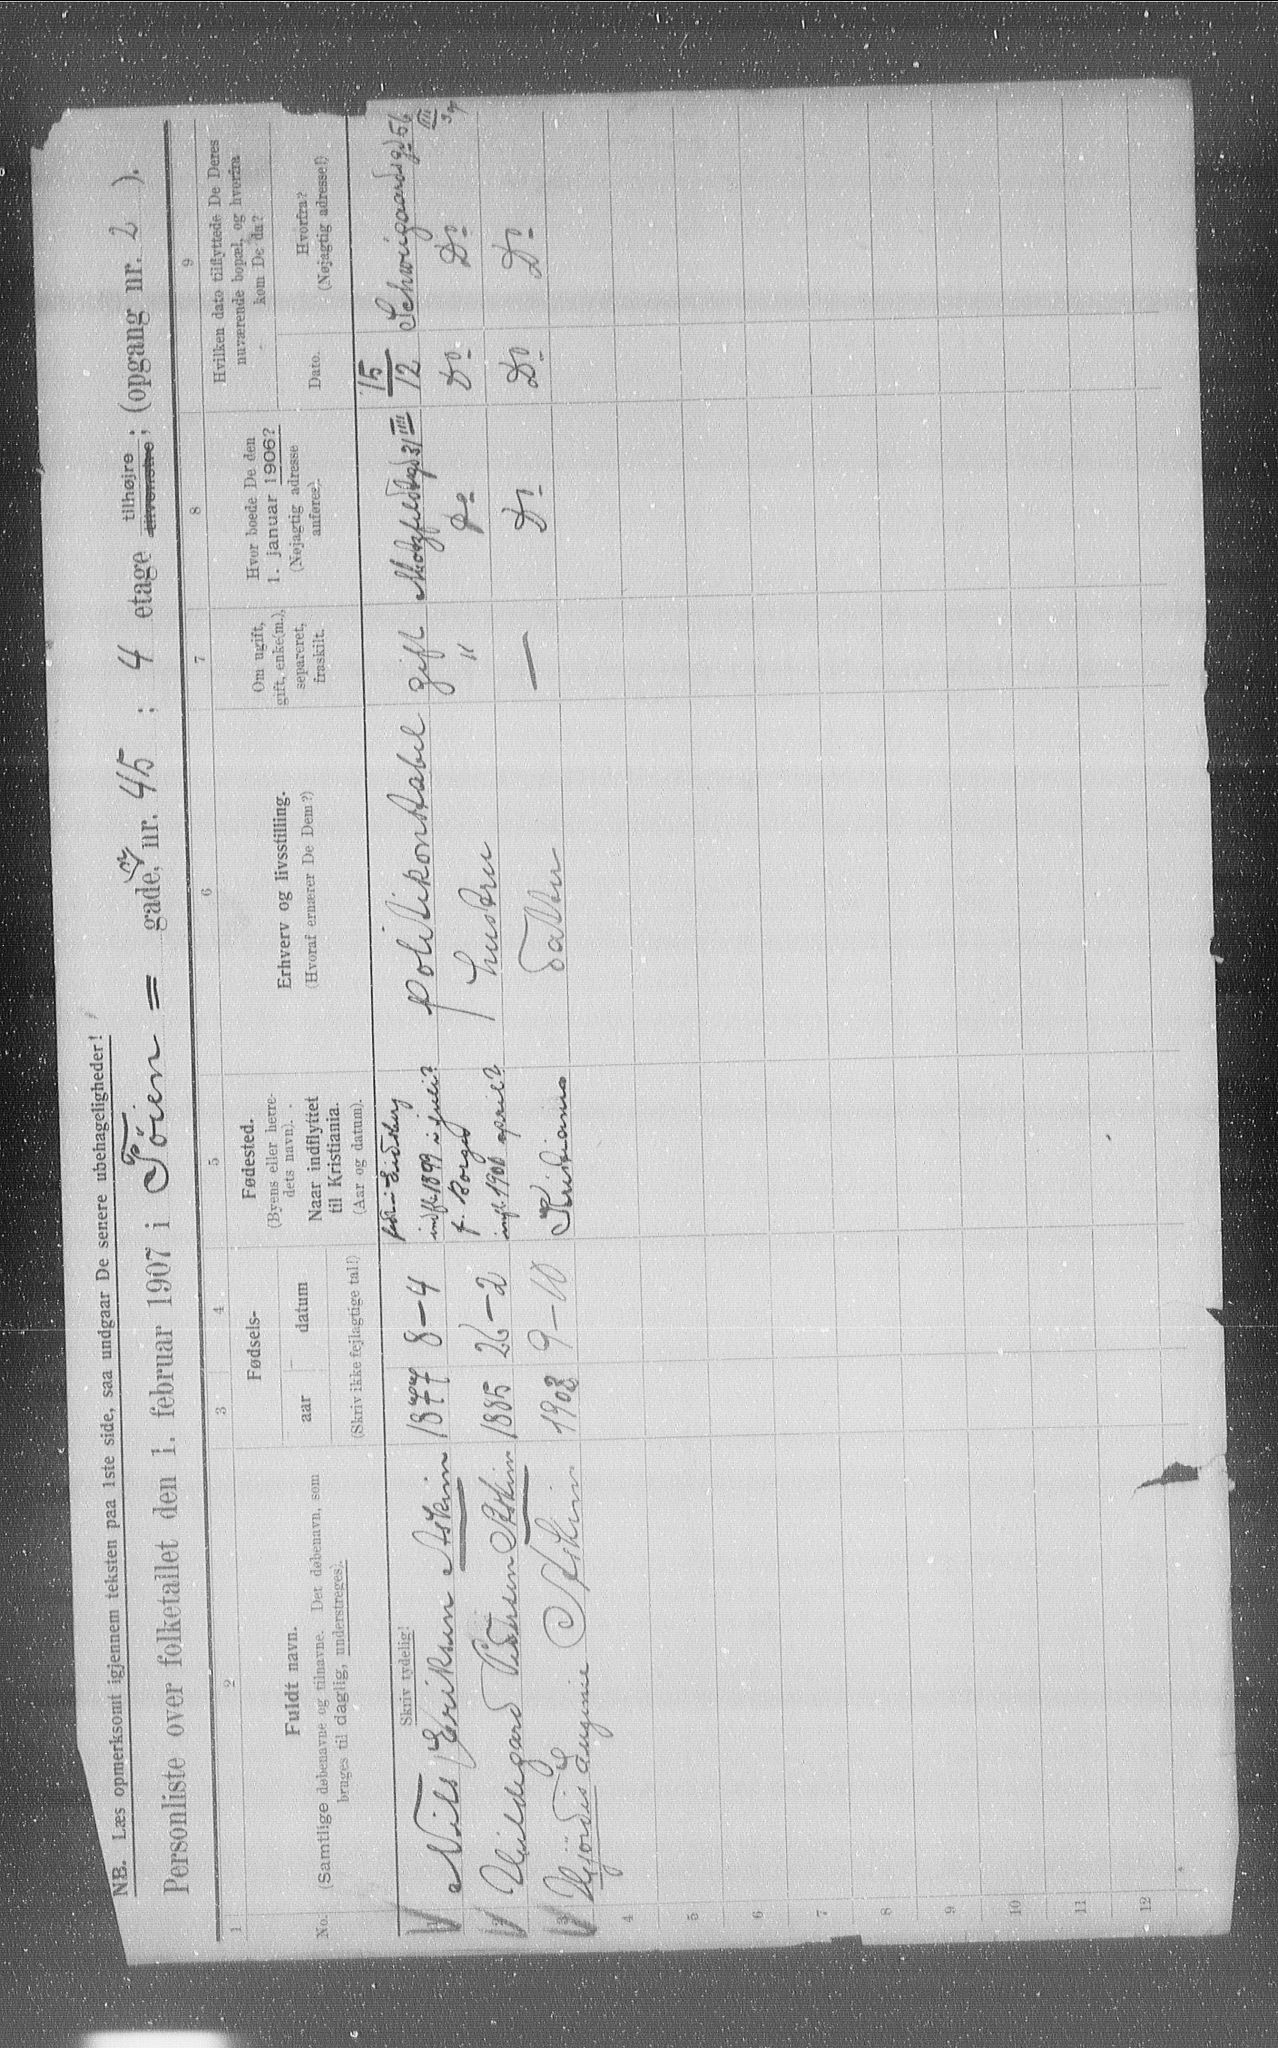 NB. Læs opmerksomt igjennem teksten paa 1ste side, saa undgaar De senere ubehageligheder!
Personliste over folketallet den 1. februar 1907 i Töien = gade, nr. 45 ; 4 etage tilhøjre ; (opgang nr. 2 ).
tilvenstre
1 2 3 4 5 6 7 8 9
No.
Fuldt navn.
(Samtlige døbenavne og tilnavne. Det døbenavn, som
bruges til daglig, understreges).
Fødsels-
aar datum
(Skriv ikke fejlagtige tal!)
Fødested.
(Byens eller herre-
dets navn).
Naar indflyttet
til Kristiania.
(Aar og datum).
Erhverv og livsstilling.
(Hvoraf ernærer De Dem?)
Om ugift,
gift, enke(m.),
separeret,
fraskilt.
Hvor boede De den
1. januar 1906?
(Nøjagtig adresse
anføres).
Hvilken dato tilflyttede De Deres
nuværende bopæl, og hvorfra
kom De da?
Dato.
Hvorfra?
(Nøjagtig adresse!)
Skriv tydelig!
1 Nils Eriksen Askim 1877 8-4 indfl. 1899 i juli? Politikonstabel gift Motzfeldtsgd 31 IIII 15/12 Schweigaardsgd 56 III
2 Hildegard Pedersen Askim 1885 26-2 f. Borge indfl. 1900 april? hustru " Do Do Do
3 Hjördis Eugenie Askim 9-10 Kristiania Datter — Do Do Do
4
5
6
7
8
9
10
11
12